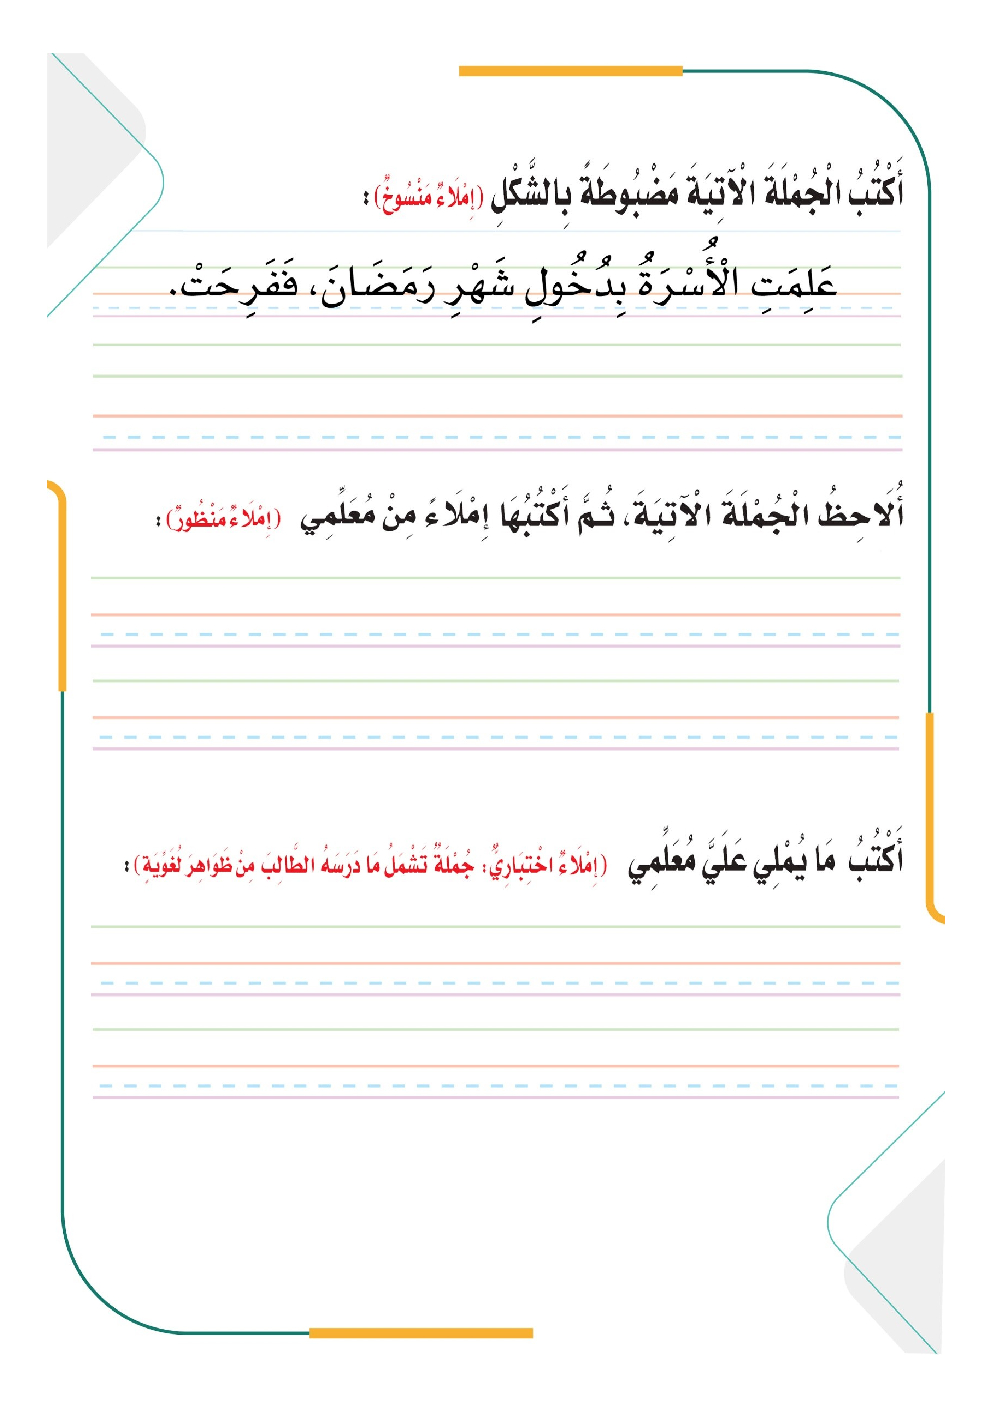 أَكْتُبُ الْجُمْلَةَ الْآتِيَةَ مَضْبُوطَةً بِالشَّكْلِ (إِمْلَاءٌ مَنْسُوخٌ) :
عَلِمَتِ الْأُسْرَةُ بِدُخُولِ شَهْرِ رَمَضَانَ، فَفَرِحَتْ.
أُلَاحِظُ الْجُمْلَةَ الْآتِيَةَ، ثُمَّ أَكْتُبُهَا إِمْلَاءً مِنْ مُعَلِّمِي (إِمْلَاءٌ مَنْظُورٌ) :
أَكْتُبُ مَا يُمْلِي عَلَيَّ مُعَلِّمِي (إِمْلَاءٌ اخْتِبَارِيٌّ: جُمْلَةٌ تَشْمَلُ مَا دَرَسَهُ الطَّالِبَ مِنْ ظَوَاهِرَ لُغَوُيَةٍ) :